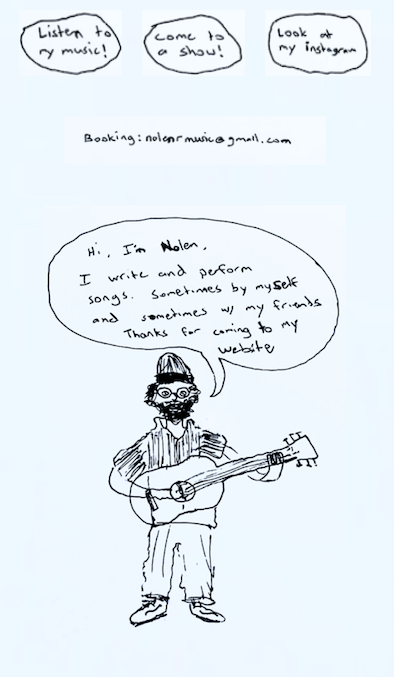 Listen to
my music!
come to
a show!
Look at
my instagram
Booking: nolenrmusic@gmail.com
Hi, I'm Nolen,
I write and perform
songs. Sometimes by myself
and sometimes w/ my friends
Thanks for coming to my
website